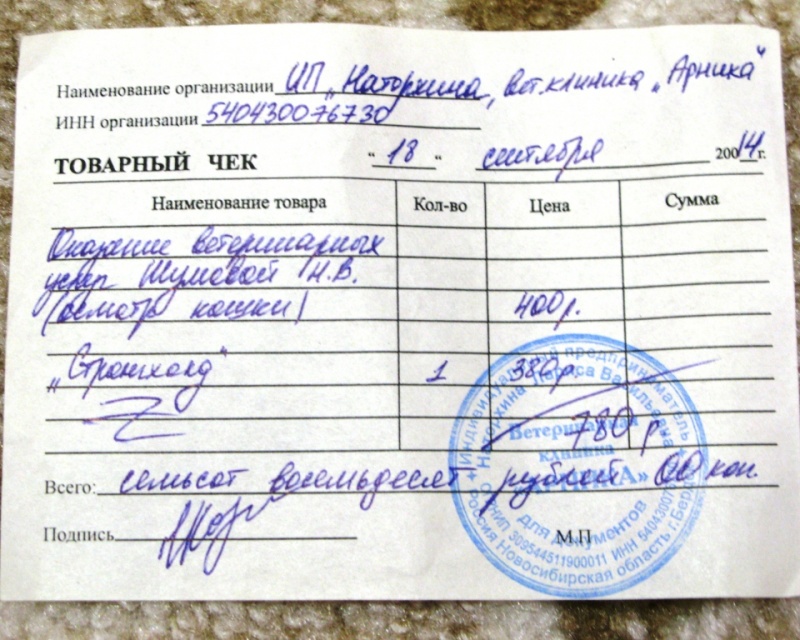 Наименование организации ИП „Наторхина, вет.клиника „Арника"
ИНН организации 540430076730
ТОВАРНЫЙ ЧЕК "18" сентября 20014г.
Наименование товара Кол-во Цена Сумма
Оказание ветеринарных
услуг Шумовой Н.В.
(осмотр кошки) 400 р.
„Стронгхолд" 1 380 р.
780 р
Всего: семьсот восемьдесят рублей 00 коп.
Подпись МП
Индивидуальный предприниматель
Наторхина Лариса Васильевна
Ветеринарная
клиника
«АРНИКА»
для документов
ОГРНИП 309544511900011 ИНН 54043007
Россия Новосибирская область г.Бердск